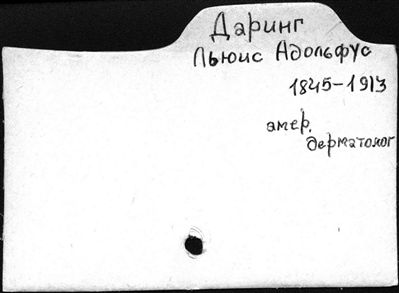 Даринг
Льюис Адольфус
1845-1913
амер.
дерматолог